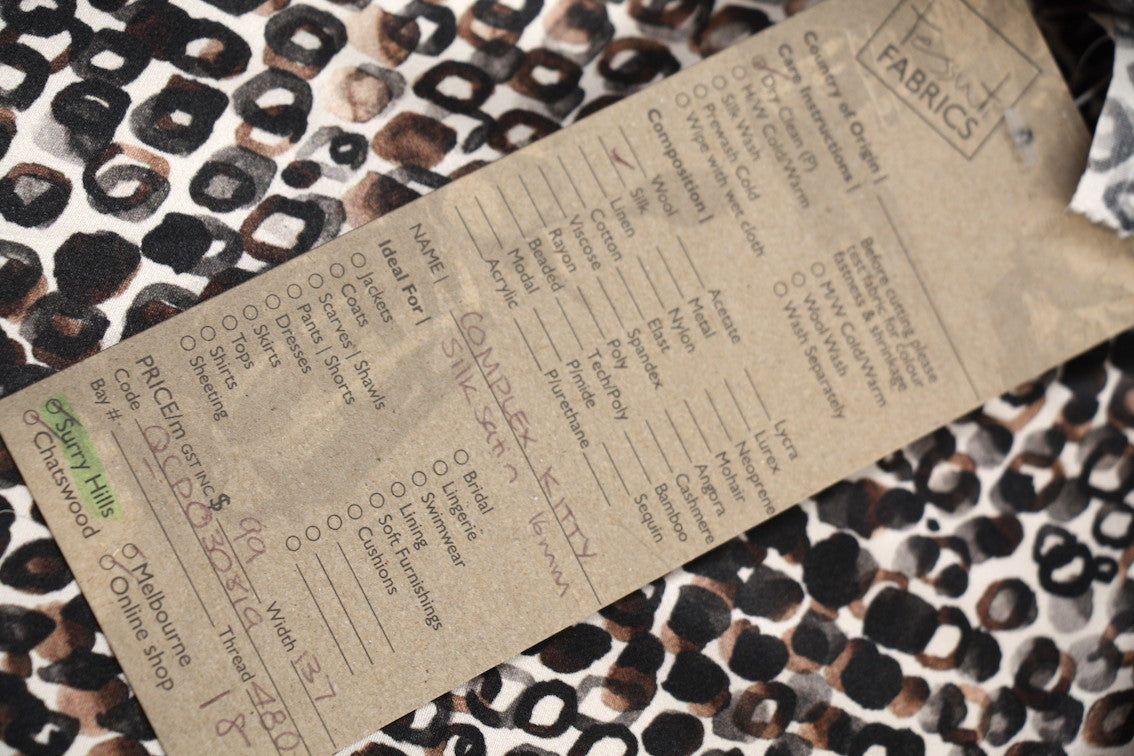 Tessuti
FABRICS
Country of Origin |
Care Instructions |
Dry Clean (P)
H/W Cold/Warm
Silk Wash
Prewash Cold
Wipe with wet cloth
Before cutting please
test fabric for colour
fastness & shrinkage
M/W Cold/Warm
Wool Wash
Wash Separately
Composition |
Wool
Silk
Linen
Cotton
Viscose
Rayon
Beaded
Modal
Acrylic
Acetate
Metal
Nylon
Elast
Spandex
Poly
Tech/Poly
P/mide
P/urethane
Lycra
Lurex
Neoprene
Mohair
Angora
Cashmere
Bamboo
Sequin
NAME | COMPLEX KITTY
Silk Satin 16mm
Ideal For |
Jackets
Coats
Scarves | Shawls
Pants | Shorts
Dresses
Skirts
Tops
Shirts
Sheeting
Bridal
Lingerie
Swimwear
Lining
Soft Furnishings
Cushions
PRICE/m GST INC $ 99 Width 137
Code QCPO30819 Thread 480
Bay #. 18
Surry Hills
Chatswood
Melbourne
Online shop